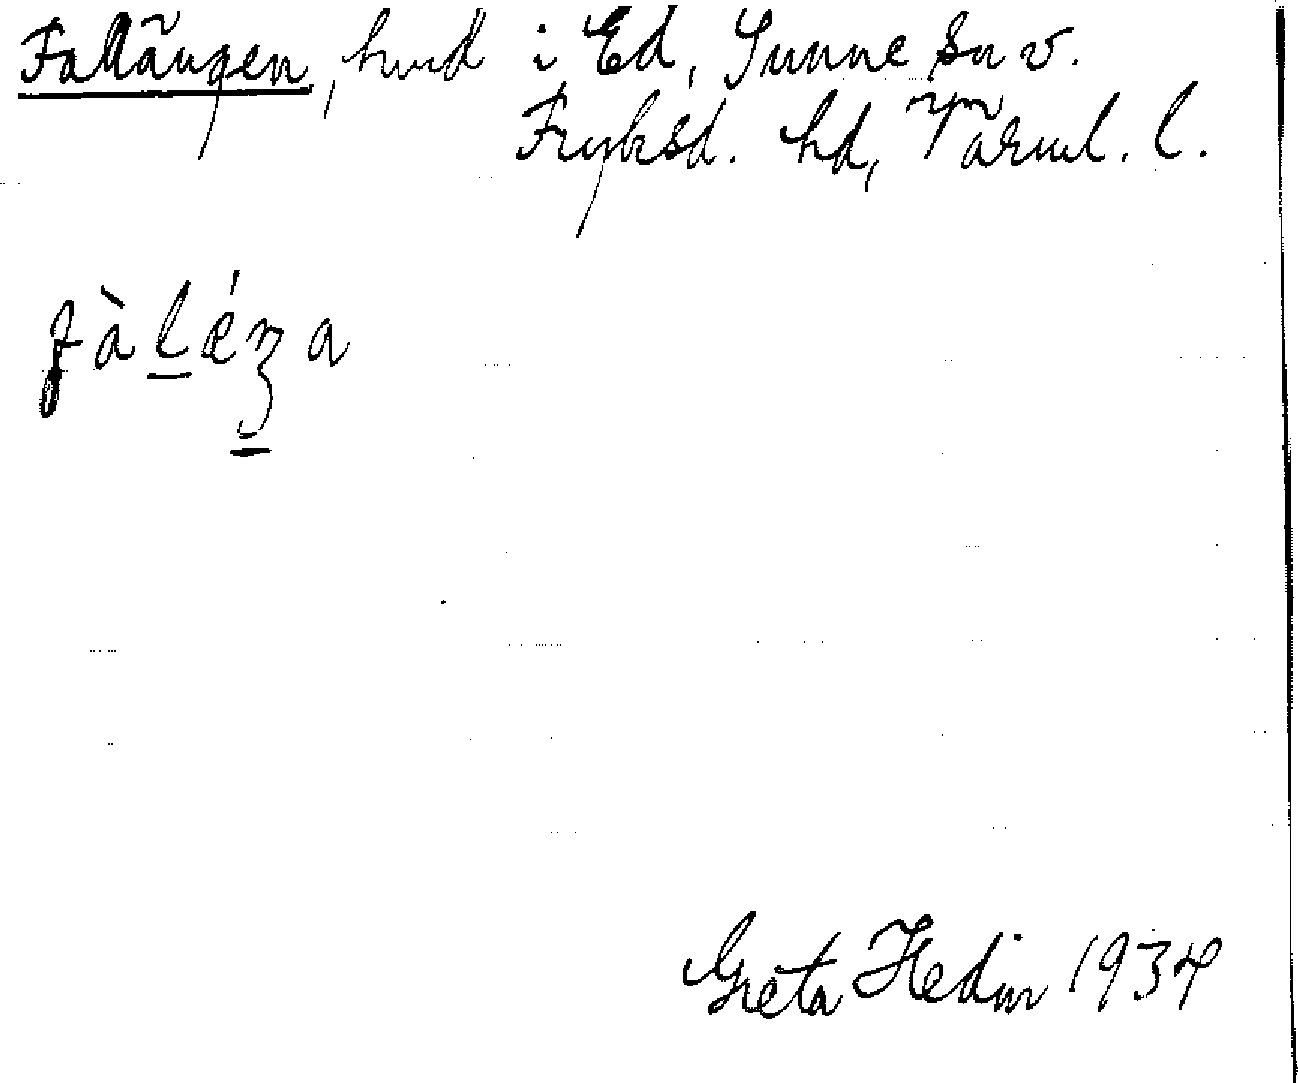 Fallängen, hmd i Ed, Sunne sn v.
Fryksd. hd, Värml. l.
fàlǽŋa
Greta Hedin 1934